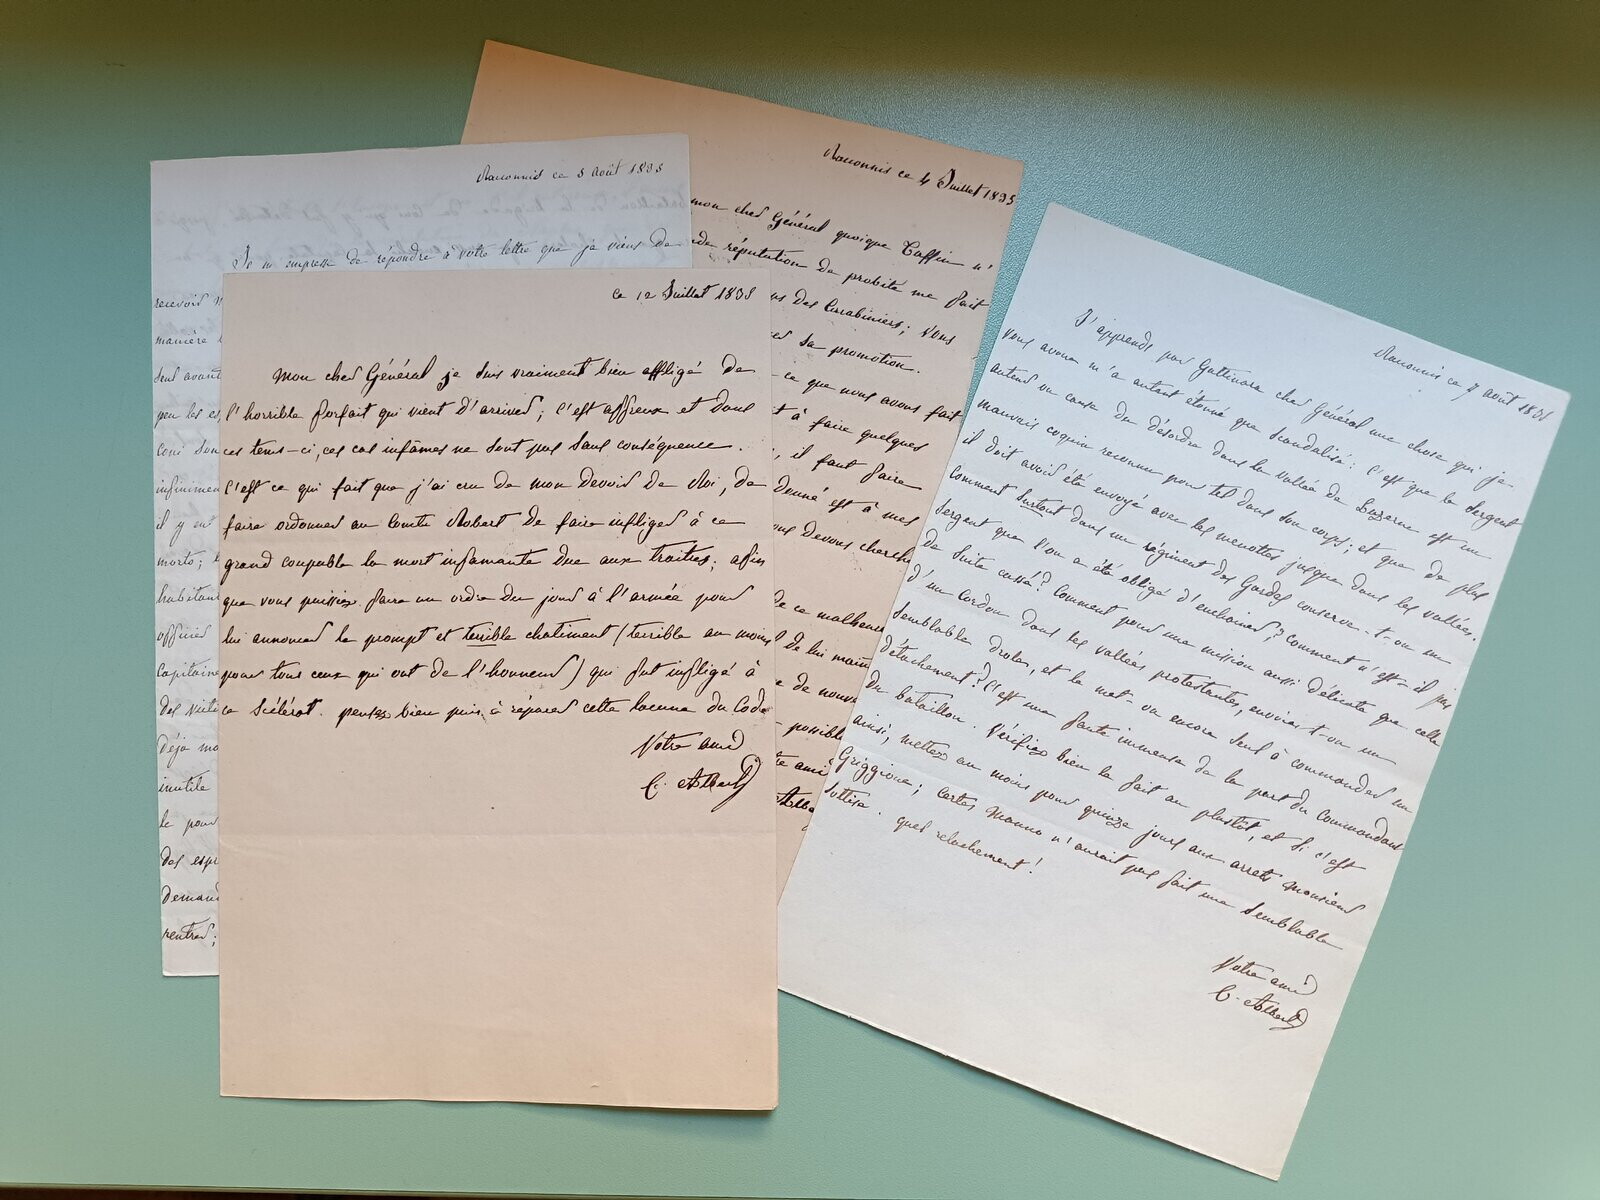 Racconnis ce 3 Août 1835
Je m'empresse de répondre à votre lettre que je viens de
recevoir
manière
seul avant
peu les
Coni son
infiniment
il y en
morts;
habitant
officier
Capitaine
des
déjà
inutile
le pour
des
demand
rentrer;
ce 12 Juillet 1835
Mon cher Général je suis vraiment bien affligé de
l'horrible forfait qui vient d'arriver; c'est affreux et dans
ces tems-ci, ces cas infâmes ne sont pas sans conséquence.
C'est ce qui fait que j'ai cru de mon devoir de Roi, de
faire ordonner au Comte Robert de faire infliger à ce
grand coupable la mort infamante due aux traitres; afin
que vous puissiez faire un ordre du jour à l'armée pour
lui annoncer le prompt et terrible chatiment (terrible au moins
pour tous ceux qui ont de l'honneur) qui fut infligé à
ce scélérat. pensez bien puis à réparer cette lacune du Code
Votre ami
C. Albert
Racconnis ce 4 Juillet 1835
mon cher Général quoique Taffin n'
réputation de probité me fait
des Carabiniers; Vous
sa promotion.
ce que nous avons fait
à faire quelques
, il faut faire
donné est à mes
devons cherch
ce malheur
de lui
de nouv
possible
ami
Albe
Racconnis ce 7 août 1835
J'apprends par Gattinara cher Général une chose qui je
vous avoue m'a autant étonné que scandalisé: c'est que le Sergent
auteur ou cause du désordre dans la vallée de Luzerne est un
mauvais coquin reconnu pour tel dans son corps; et que de plus
il doit avoir été envoyé avec les menottes jusque dans les vallées.
Comment surtout dans un régiment des Gardes conserve-t-on un
Sergent que l'on a été obligé d'enchainer? Comment n'est-il pas
de suite cassé? Comment pour une mission aussi délicate que celle
d'un Cordon dans les vallées protestantes, envoie-t-on un
semblable drole, et le met-on encore seul à commander un
détachement? C'est une faute immense de la part du Commandant
du bataillon. Vérifiez bien le fait au plustôt, et si c'est
ainsi, mettez au moins pour quinze jours aux arrets Monsieur
Griggione; certes Manno n'aurait pas fait une semblable
sottise. quel relachement!
Votre ami
C. Albert